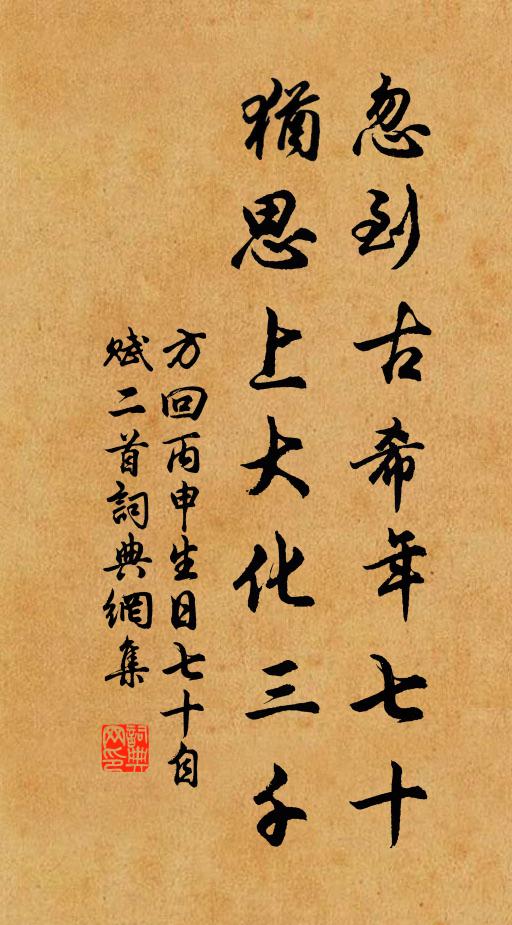 忽到古希年七十
猶思上大化三千
方回丙申生日七十自
賦二首詞典網集
詞典
网印